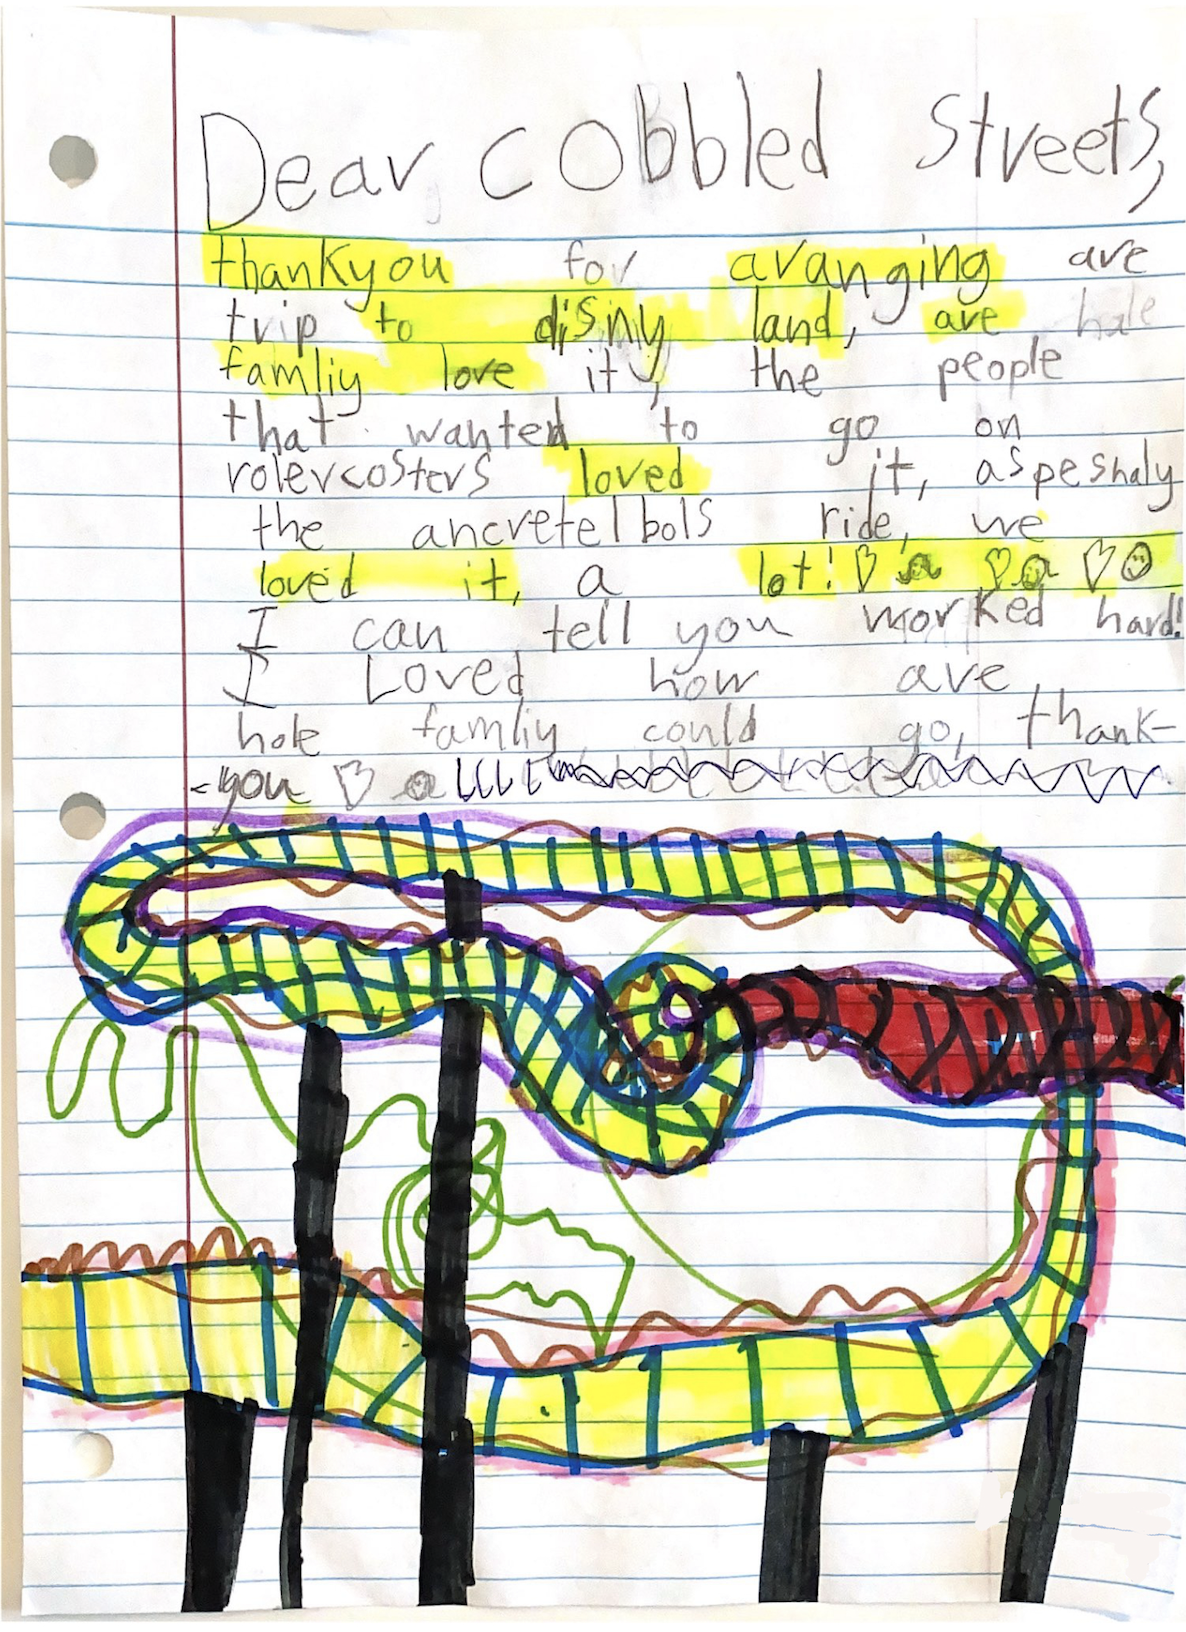 Dear cobbled streets,
thankyou for aranging are
trip to disiny land, are hole
famliy love it, the people
that wanted to go on
rolercosters loved it, aspeshaly
the ancretelbols ride, we
loved it, a lot!
I can tell you worked hard!
I Loved how are
hole famliy could go, thank-
-you